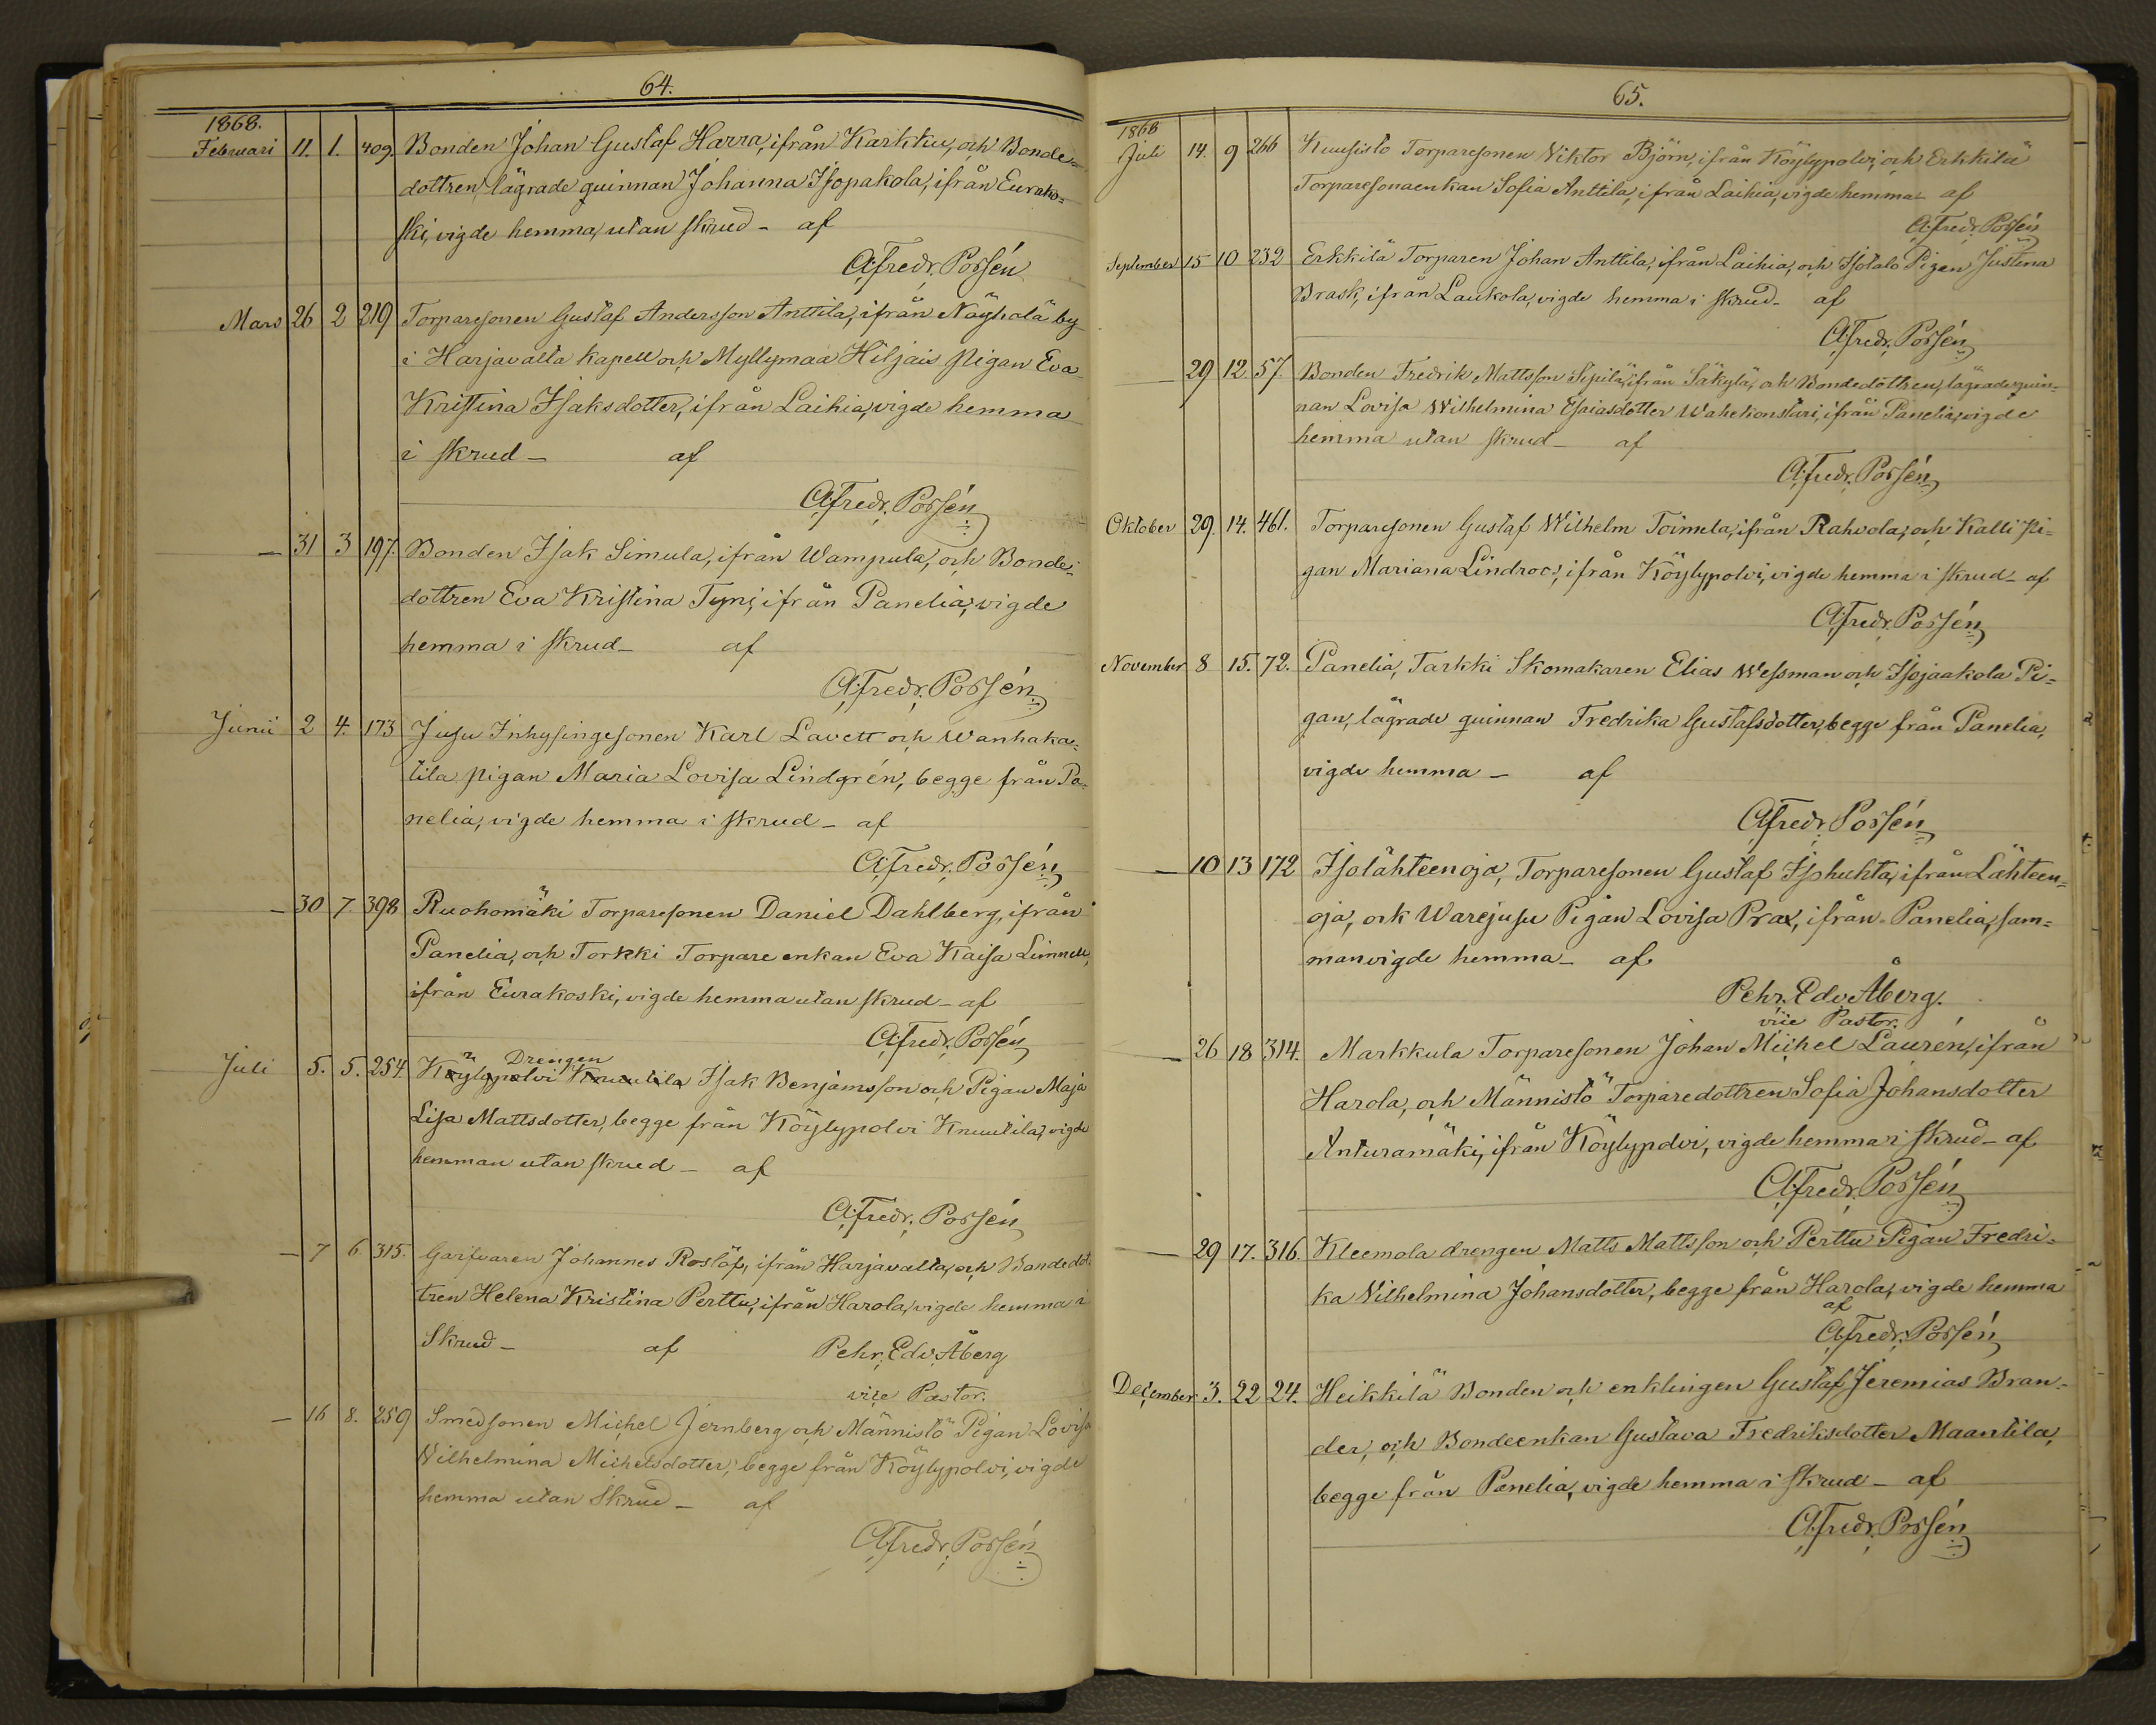 64.
1868.
Februari 11. 1. 409. Bonden Johan Gustaf Harra, ifrån Karkku, och Bonde-
dottren, lägrade quinnan Johanna Isopakola, ifrån Eurako-
ski, vigde hemma, utan skrud - af
A. Fredr. Possén
Mars 26 2 219 Torparesonen Gustaf Andersson Anttila, ifrån Näyhälä by
i Harjavalta kapell och Myllymaa Hiljais Pigan Eva
Kristina Isaksdotter, ifrån Laihia, vigde hemma
i skrud - af
A. Fredr. Possén
- 31 3 197. Bonden Isak Simula, ifrån Wampula, och Bonde-
dottren Eva Kristina Tyni, ifrån Panelia, vigde
hemma i skrud - af
A. Fredr. Possén
Junii 2 4. 173 Jusu Inhysingesonen Karl Lavett och Wanhaka-
tila pigan Maria Lovisa Lindgrén, begge från Pa-
nelia, vigde hemma i skrud - af
A. Fredr. Possén
- 30 7. 398 Ruohomäki Torparesonen Daniel Dahlberg, ifrån
Panelia, och Torkki Torpare enkan Eva Kaisa Linnell,
ifrån Eurakoski, vigde hemma utan skrud - af
A. Fredr. Possén
Drengen
Juli 5. 5. 254. Köylypolvi Knuutila Isak Benjamsson och Pigan Maja
Lisa Mattsdotter, begge från Köylypolvi Knuutila, vigde
hemman utan skrud - af
A. Fredr. Possén
- 7 6. 315. Garfvaren Johannes Roslöf, ifrån Harjavalta, och Bondedot-
tren Helena Kristina Perttu, ifrån Harola, vigde hemma i
Skrud - af Pehr. Edv. Åberg
vice Pastor.
- 16 8. 259 Smedsonen Michel Jernberg och Männistö Pigan Lovisa
Wilhelmina Michelsdotter, begge från Köylypolvi, vigde
hemma utan Skrud - af
A. Fredr. Possén
65.
1868
Juli 14. 9 266 Kuusisto Torparesonen Viktor Björn, ifrån Köylypolvi, och Erkkilä
Torparesonaenkan Sofia Anttila, ifrån Laihia, vigde hemma - af
A. Fredr. Possén
September 15 10 232 Erkkilä Torparen Johan Anttila, ifrån Laihia, och Isotalo Pigan Justina
Brask, ifrån Laukola, vigde hemma i skrud - af
A. Fredr. Possén
- 29 12. 57. Bonden Fredrik Mattsson Sipilä, ifrån Säkylä, och Bondedottren, lägrade quin-
nan Lovisa Wilhelmina Esaiasdotter Wahekonstari, ifrån Panelia, vigde
hemma utan skrud - af
A. Fredr. Possén
Oktober 29. 14. 461. Torparesonen Gustaf Wilhelm Toimela, ifrån Rahvola, och Kalli Pi-
gan Mariana Lindroos, ifrån Köylypolvi, vigde hemma i skrud - af
A. Fredr. Possén
November 8 15. 72. Panelia, Tarkki Skomakaren Elias Wessman och Isojaakola Pi-
gan, lägrade quinnan Fredrika Gustafsdotter, begge från Panelia,
vigde hemma - af
A. Fredr. Possén
- 10 13 172 Isolähteenoja, Torparesonen Gustaf Isohuhta, ifrån Lähteen-
oja, och Warejusu Pigan Lovisa Prax, ifrån Panelia, sam-
manvigde hemma - af
Pehr. Edv. Åberg.
vice Pastor.
- 26 18 314. Markkula Torparesonen Johan Michel Laurén, ifrån
Harola, och Männistö Torparedottren Sofia Johansdotter
Anturamäki, ifrån Köylypolvi, vigde hemma i skrud - af
A. Fredr. Possén
- 29 17. 316. Kleemola drengen Matts Mattsson och Perttu Pigan Fredri-
ka Vilhelmina Johansdotter, begge från Harola, vigde hemma
af
A. Fredr. Possén
December 3. 22 24. Heikkilä Bonden och enklingen Gustaf Jeremias Bran-
der, och Bondeenkan Gustava Fredriksdotter Maantila,
begge från Panelia, vigde hemma i skrud - af
A. Fredr. Possén